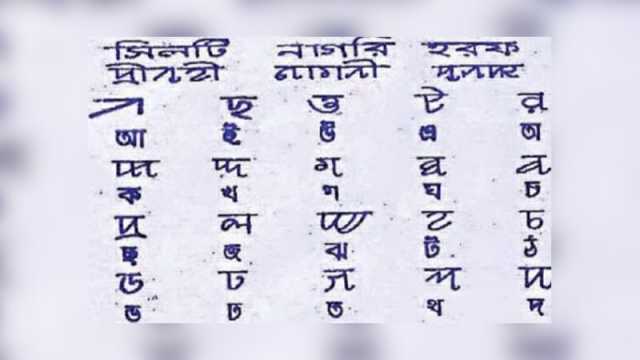 সিলটি নাগরি হরফ
ꠀ ꠁ ꠃ ꠄ ꠅ
আ ই উ এ অ
ꠇ ꠈ ꠉ ꠊ ꠌ
ক খ গ ঘ চ
ꠍ ꠎ ꠏ ꠐ ꠑ
ছ জ ঝ ট ঠ
ꠒ ꠓ ꠔ ꠕ ꠖ
ড ঢ ত থ দ